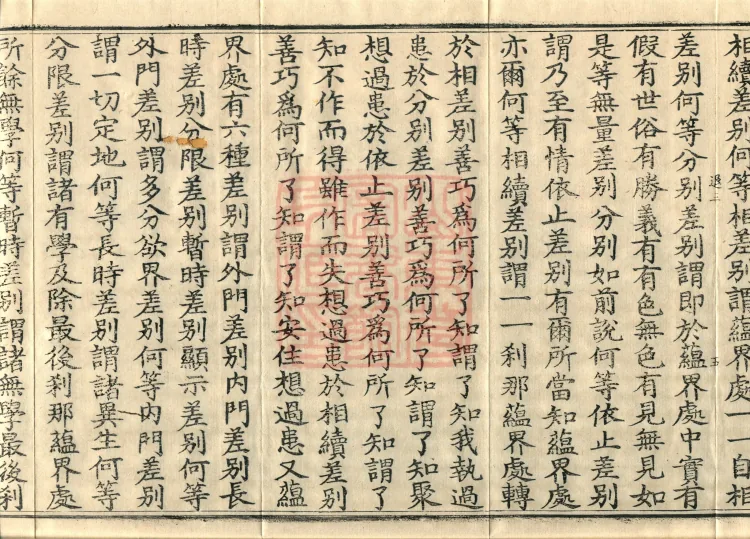 相續差別何等相差別謂蘊界處一一自相
差別何等分別差別謂即於蘊界處中實有
假有世俗有勝義有有色無色有見無見如
是等無量差別分別如前說何等依止差別
謂乃至有情依止差別有爾所當知蘊界處
亦爾何等相續差別謂一一刹那蘊界處轉
於相差別善巧爲何所了知謂了知我執過
患於分別差別善巧爲何所了知謂了知聚
想過患於依止差別善巧爲何所了知謂了
知不作而得雖作而失想過患於相續差別
善巧爲何所了知謂了知安住想過患又蘊
界處有六種差別謂外門差別內門差別長
時差別分限差別暫時差別顯示差別何等
外門差別謂多分欲界差別何等內門差別
謂一切定地何等長時差別謂諸異生何等
分限差別謂諸有學及除最後刹那蘊界處
所餘無學何等暫時差別謂諸無學最後刹